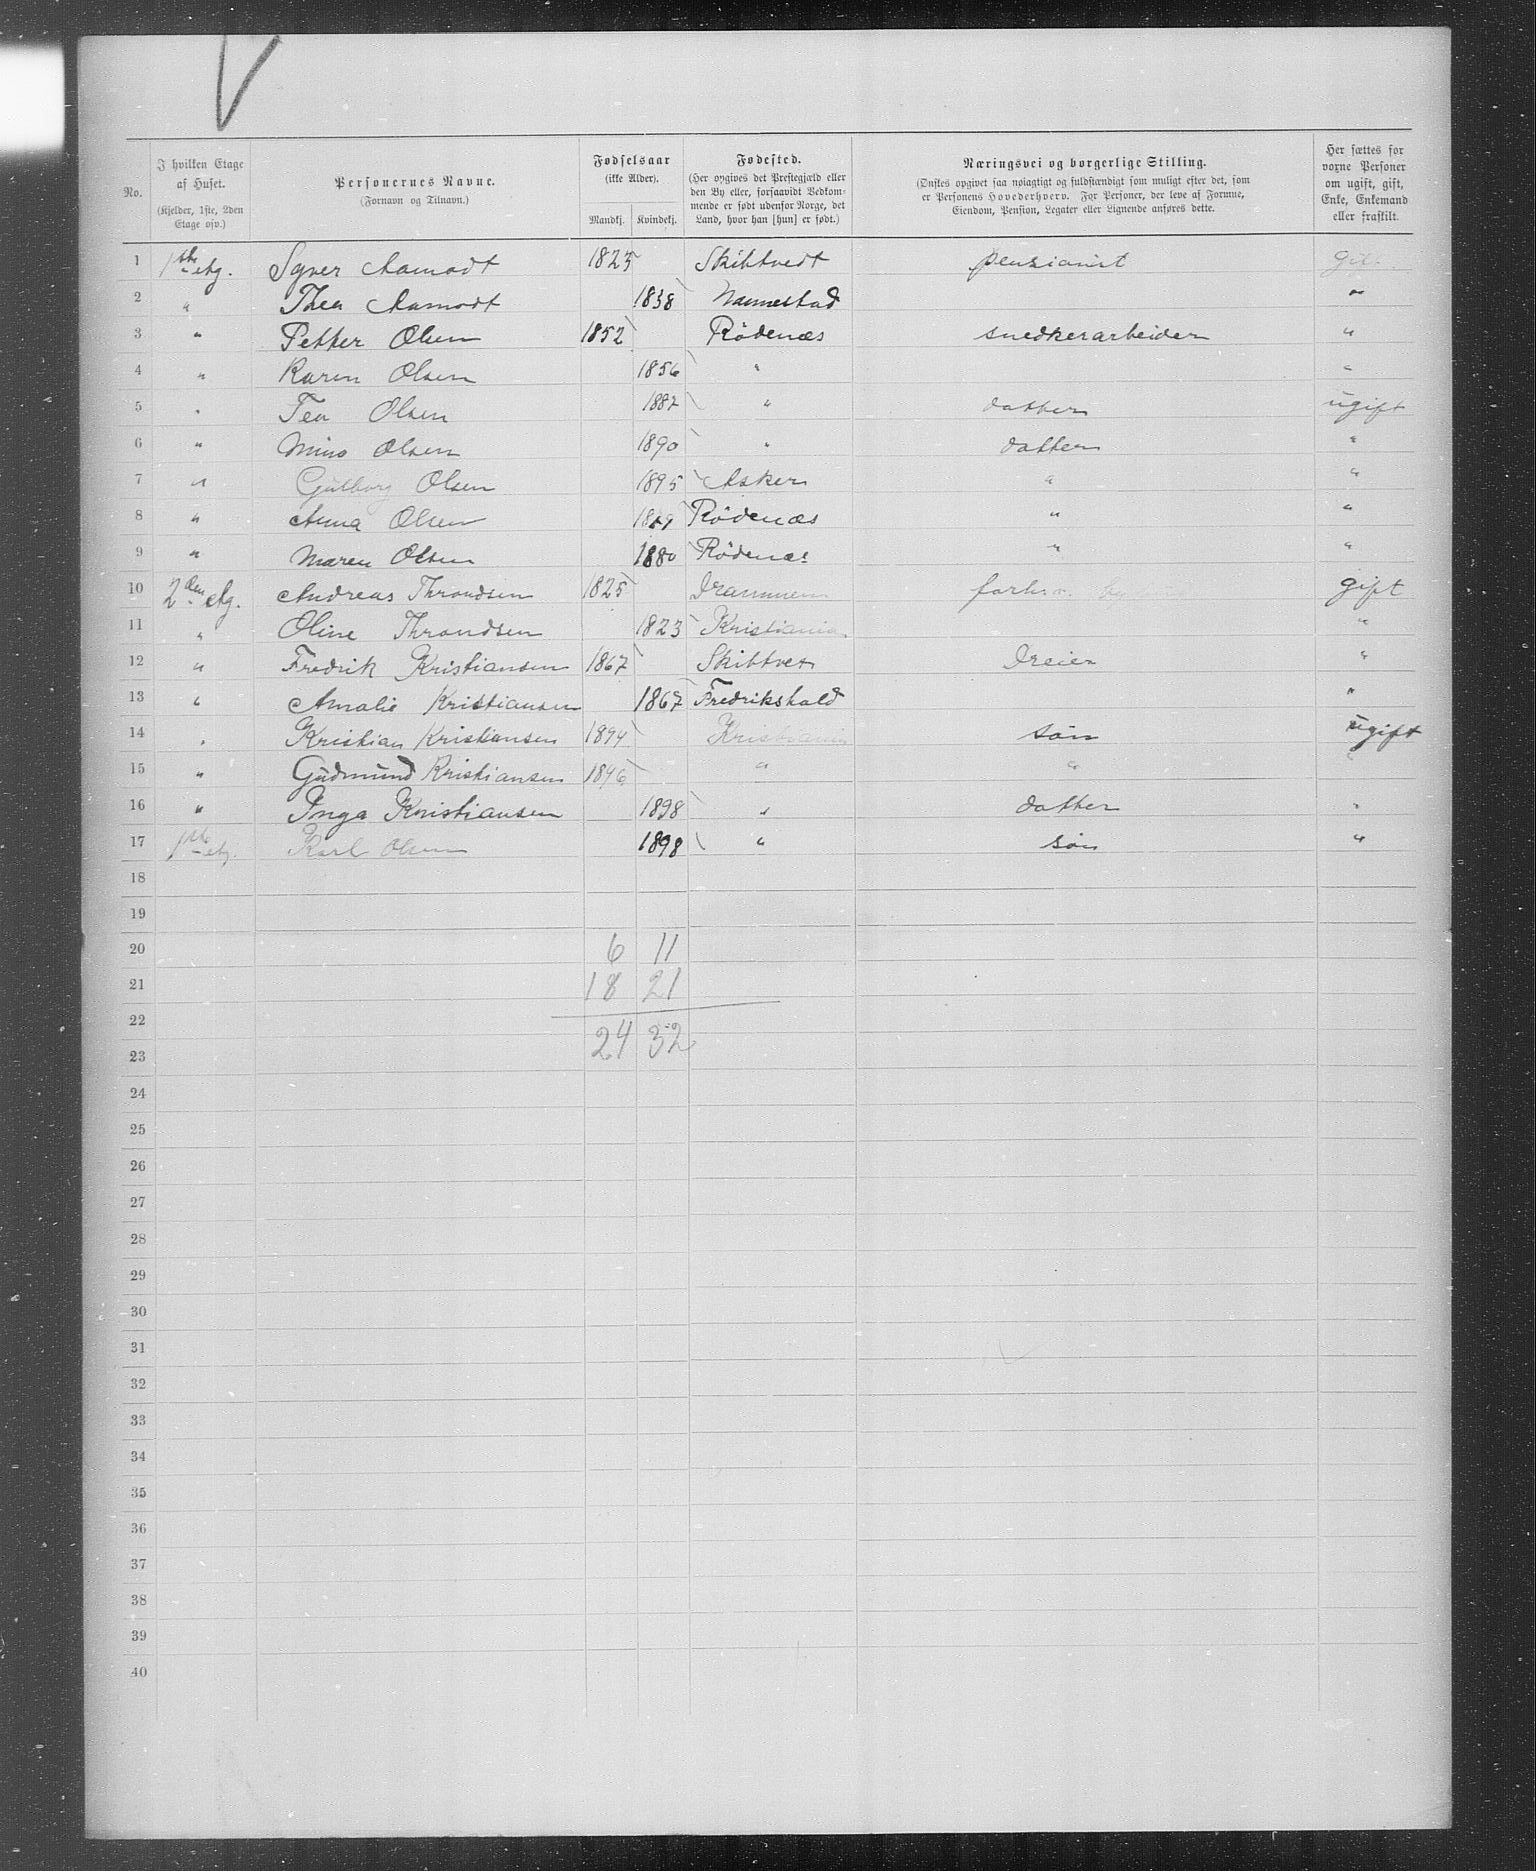 No. I hvilken Etage af Huset. (Kjelder, 1ste, 2den Etage osv.) Personernes Navne. (Fornavn og Tilnavn.) Fødselsaar (ikke Alder). Mandkj. Kvindekj. Fødested. (Her opgives det Prestegjæld eller den By eller, forsaavidt Vedkommende er født udenfor Norge, det Land, hvor han [hun] er født.) Næringsvei og borgerlige Stilling. (Ønskes opgivet saa nøiagtigt og fuldstændigt som muligt efter det, som er Personens Hovederhverv. For Personer, der leve af Formue, Eiendom, Pension, Legater eller Lignende anføres dette. Her sættes for voxne Personer om ugift, gift, Enke, Enkemand eller fraskilt.
1 1ste etg. Syver Aamodt 1825 Skibtvedt pensionist gift
2 " Thea Aamodt 1838 Nannestad "
3 " Petter Olsen 1852 Rödenæs snedkerarbeider "
4 " Karen Olsen 1856 " "
5 " Tea Olsen 1887 " datter ugift
6 " Mina Olsen 1890 " datter "
7 " Gütborg Olsen 1895 Asker " "
8 " Anna Olsen Rödenæs " "
9 " Maren Olsen 1880 Rödenæs " "
10 2den etg. Andreas Throndsen 1825 Drammen gift
11 " Oline Throndsen 1823 Kristiania "
12 " Fredrik Kristiansen 1867 Skibtvet Dreier "
13 " Amalie Kristiansen 1867 Fredrikshald "
14 " Kristian Kristiansen 1894 Kristiania sön ugift
15 " Güdmünd Kristiansen 1896 " " "
16 " Inga Kristiansen 1898 " datter "
17 1ste etg. Karl Olsen 1898 " sön "
18
19
20 6 11
21 18 21
22
23 24 32
24
25
26
27
28
29
30
31
32
33
34
35
36
37
38
39
40